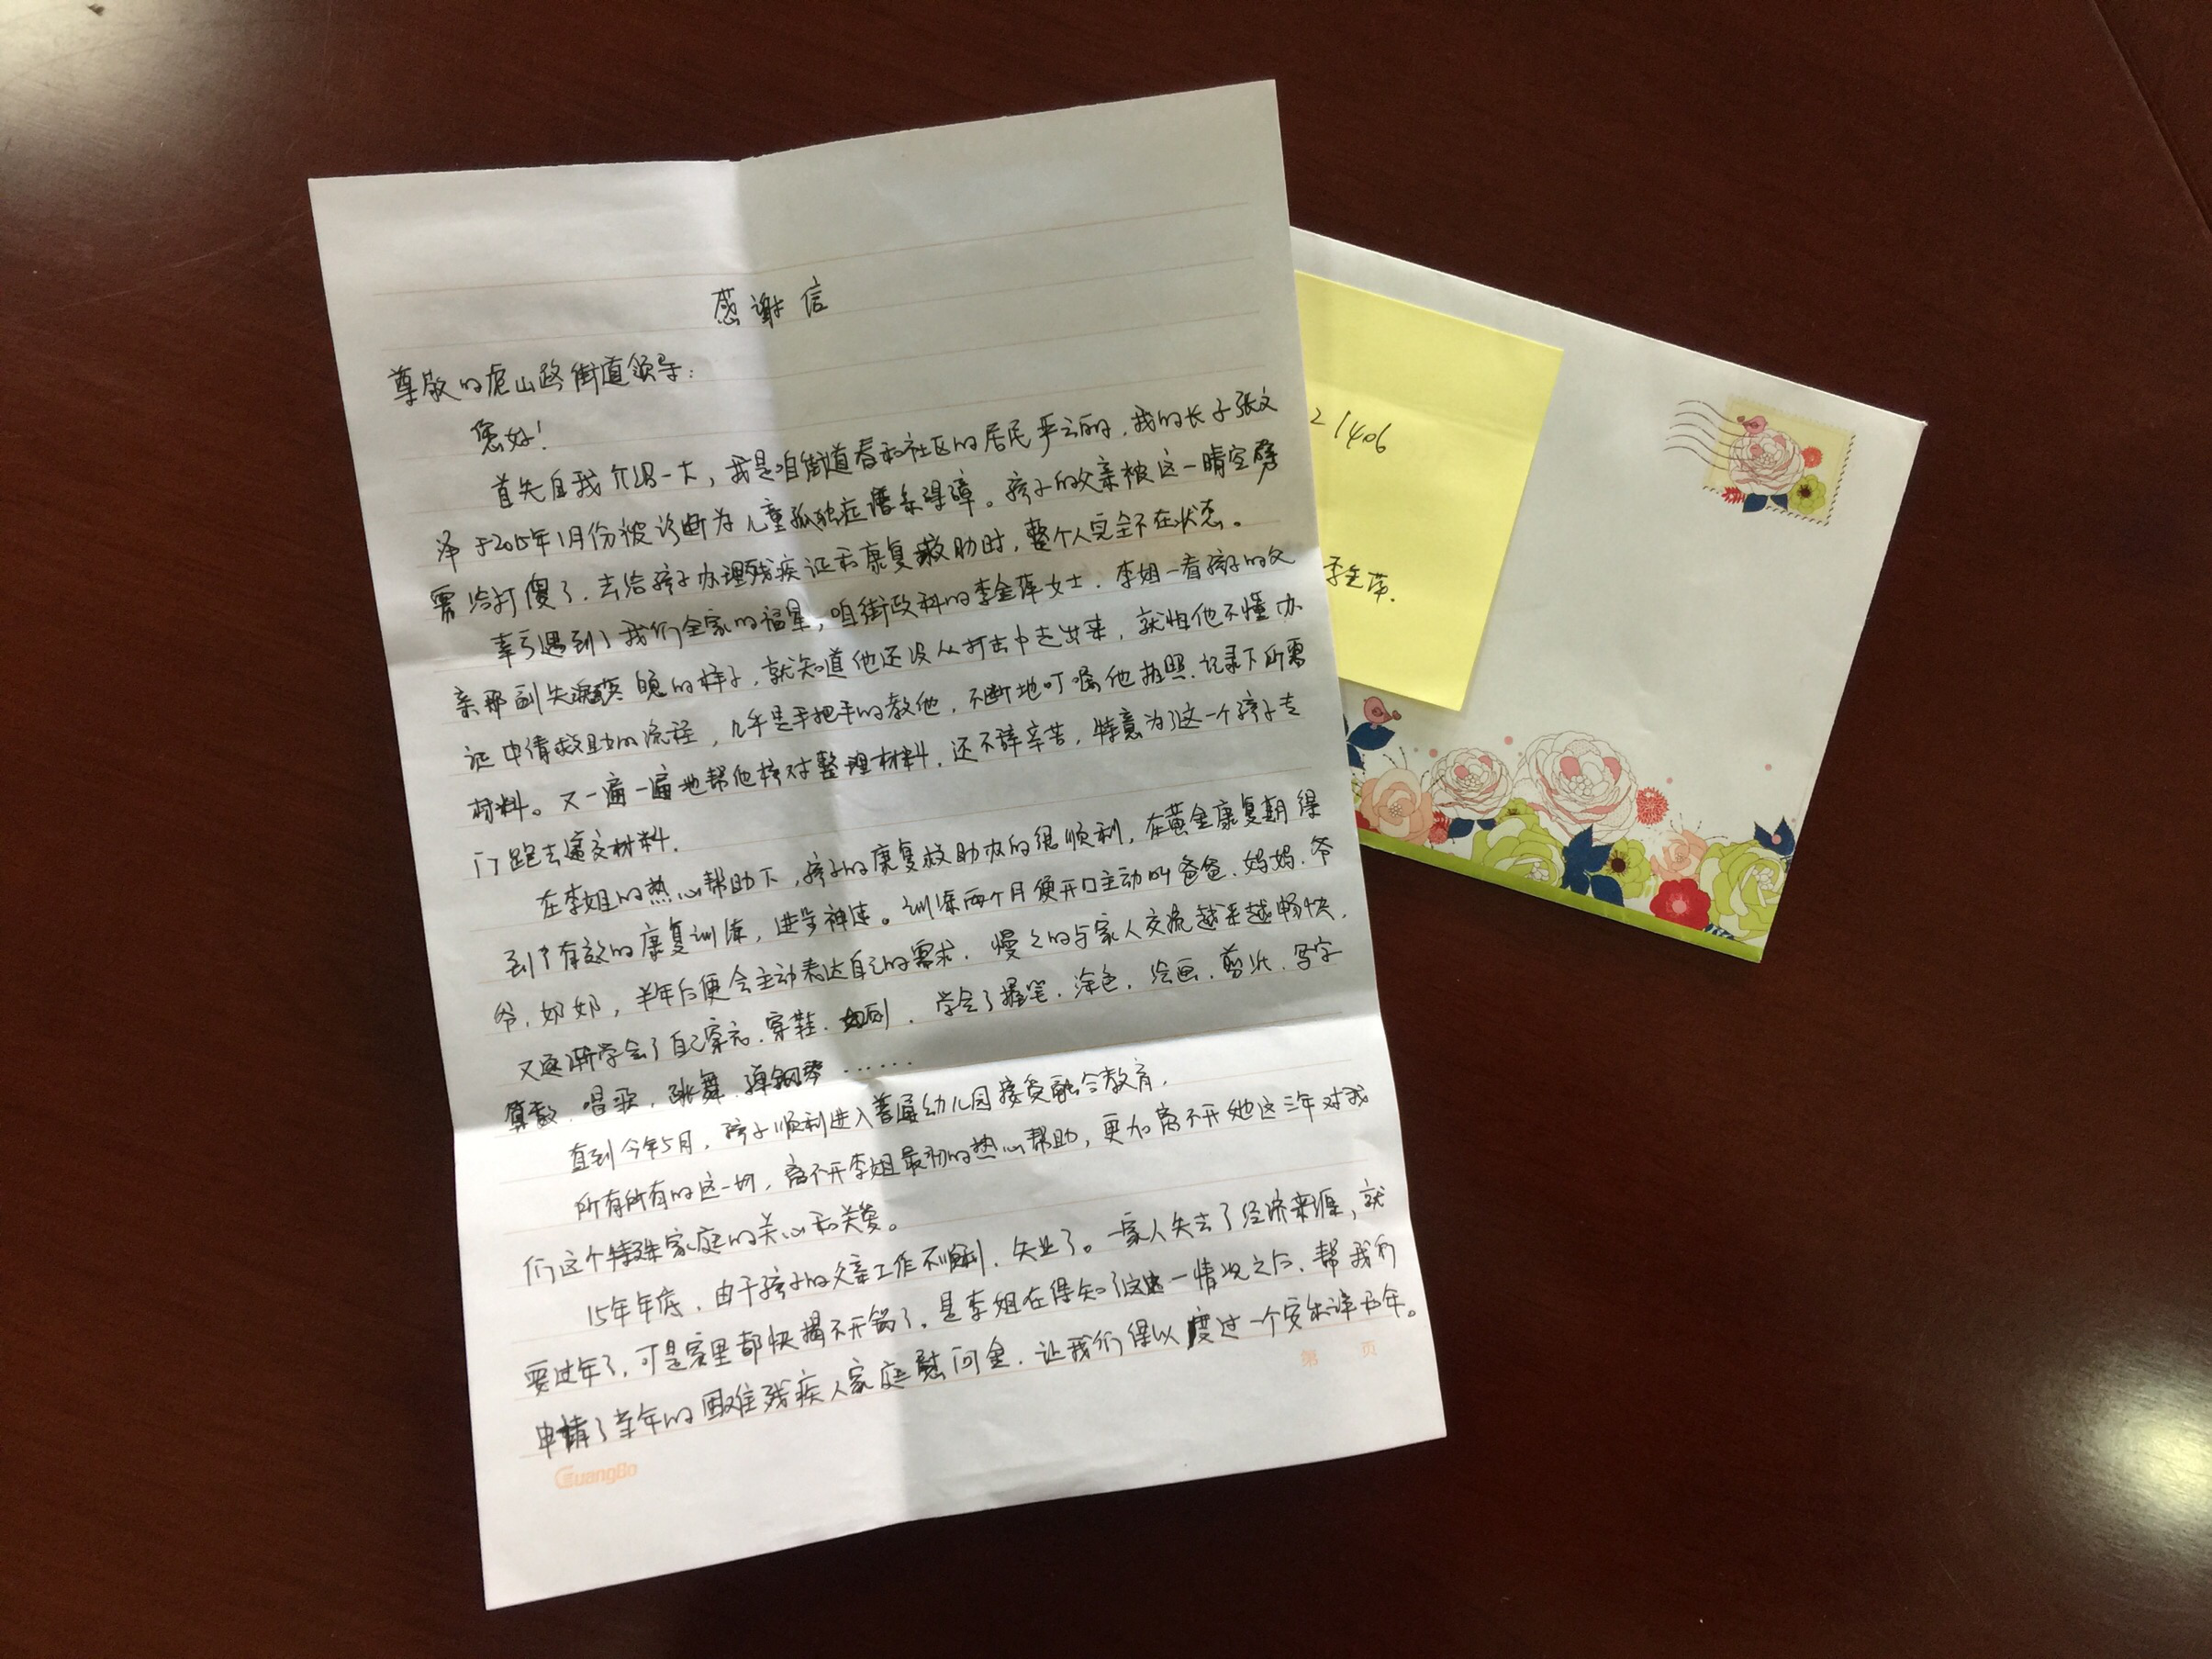 感谢信
尊敬的虎山路街道领导：
您好！
首先自我介绍一下，我是咱街道春和社区的居民 我的长子张文
泽于2015年1月份被诊断为儿童孤独症谱系障碍。孩子的父亲被这一晴空霹
雳给打傻了，去给孩子办理残疾证和康复救助时，整个人完全不在状态。
幸亏遇到了我们全家的福星，咱街政科的李金萍女士。李姐一看孩子的父
亲那副失魂落魄的样子，就知道他还没从打击中走出来，就怕他不懂办
证申请救助的流程，几乎是手把手的教他，不断地叮嘱他拍照、记录下所需
材料。又一遍一遍地帮他核对整理材料，还不辞辛苦，特意为了这一个孩子专
门跑去递交材料。
在李姐的热心帮助下，孩子的康复救助办的很顺利，在黄金康复期得
到了有效的康复训练，进步神速。训练两个月便开口主动叫爸爸、妈妈、爷
爷、奶奶，半年后便会主动表达自己的需求，慢慢的与家人交流越来越畅快，
又逐渐学会了自己穿衣、穿鞋、如厕，学会了握笔、涂色、绘画、剪纸、写字
算数、唱歌、跳舞、弹钢琴……
直到今年5月，孩子顺利进入普通幼儿园接受融合教育，
所有所有的这一切，离不开李姐最初的热心帮助，更加离不开她这三年对我
们这个特殊家庭的关心和关爱。
15年年底，由于孩子的父亲工作不顺利，失业了。一家人失去了经济来源，就
要过年了，可是家里都快揭不开锅了，是李姐在得知了这一情况之后，帮我们
申请了幸年的困难残疾人家庭慰问金，让我们得以度过一个安生详和年。
第 页
GuangBo
21406
李金萍.